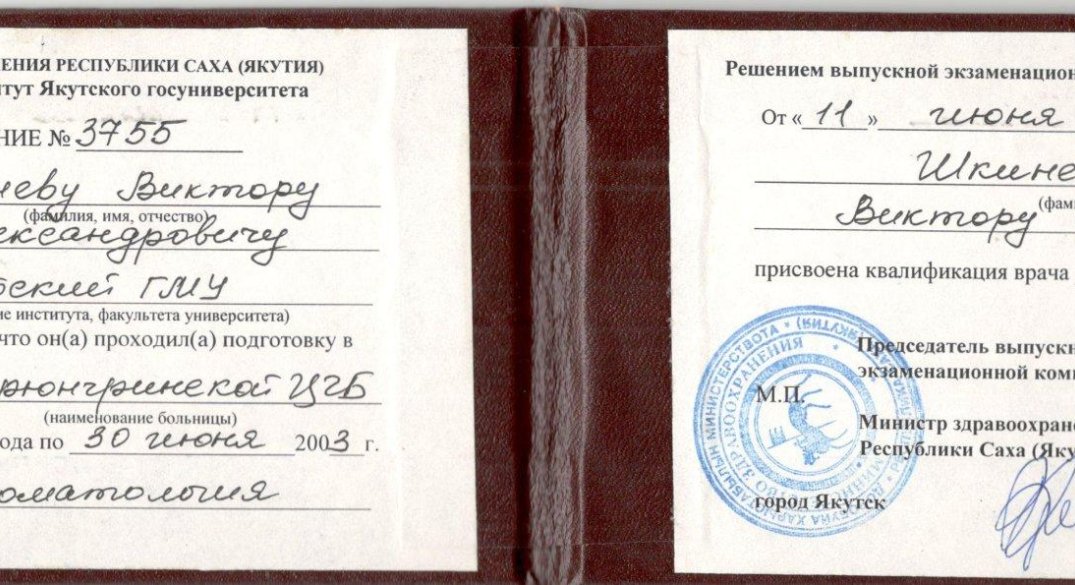 ЕНИЯ РЕСПУБЛИКИ САХА (ЯКУТИЯ)
тут Якутского госуниверситета
НИЕ № 3755
еву Виктору
(фамилия, имя, отчество)
ександровичу
ский ГМУ
ие института, факультета университета)
что он(а) проходил(а) подготовку в
рюнгринской ЦГБ
(наименование больницы)
ода по 30 июня 2003 г.
оматология
Решением выпускной экзаменацион
От « 11 » июня
Шкине
(фам
Виктору
присвоена квалификация врача
Председатель выпускн
экзаменационной ком
М.П.
Министр здравоохран
Республики Саха (Яку
город Якутск